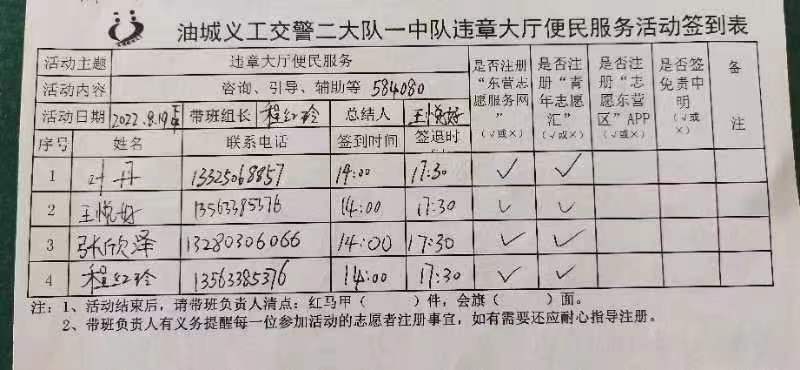 油城义工交警二大队一中队违章大厅便民服务活动签到表
活动主题 违章大厅便民服务 是否注册“东营志愿服务网”（√或×） 是否注册“青年志愿汇”（√或×） 是否注册“志愿东营区”APP（√或×） 是否签免责申明（√或×） 备注
活动内容 咨询、引导、辅助等 584080
活动日期 2022.8.19下午 带班组长 程红玲 总结人 王悦好
序号 姓名 联系电话 签到时间 签退时
1 叶丹 13325068857 14:00 17:30 √ √
2 王悦好 13563385376 14:00 17:30 √ √
3 张欣泽 13280306066 14:00 17:30 √ √
4 程红玲 13563385376 14:00 17:30 √ √
注：1、活动结束后，请带班负责人清点：红马甲（ ）件，会旗（ ）面。
2、带班负责人有义务提醒每一位参加活动的志愿者注册事宜，如有需要还应耐心指导注册。